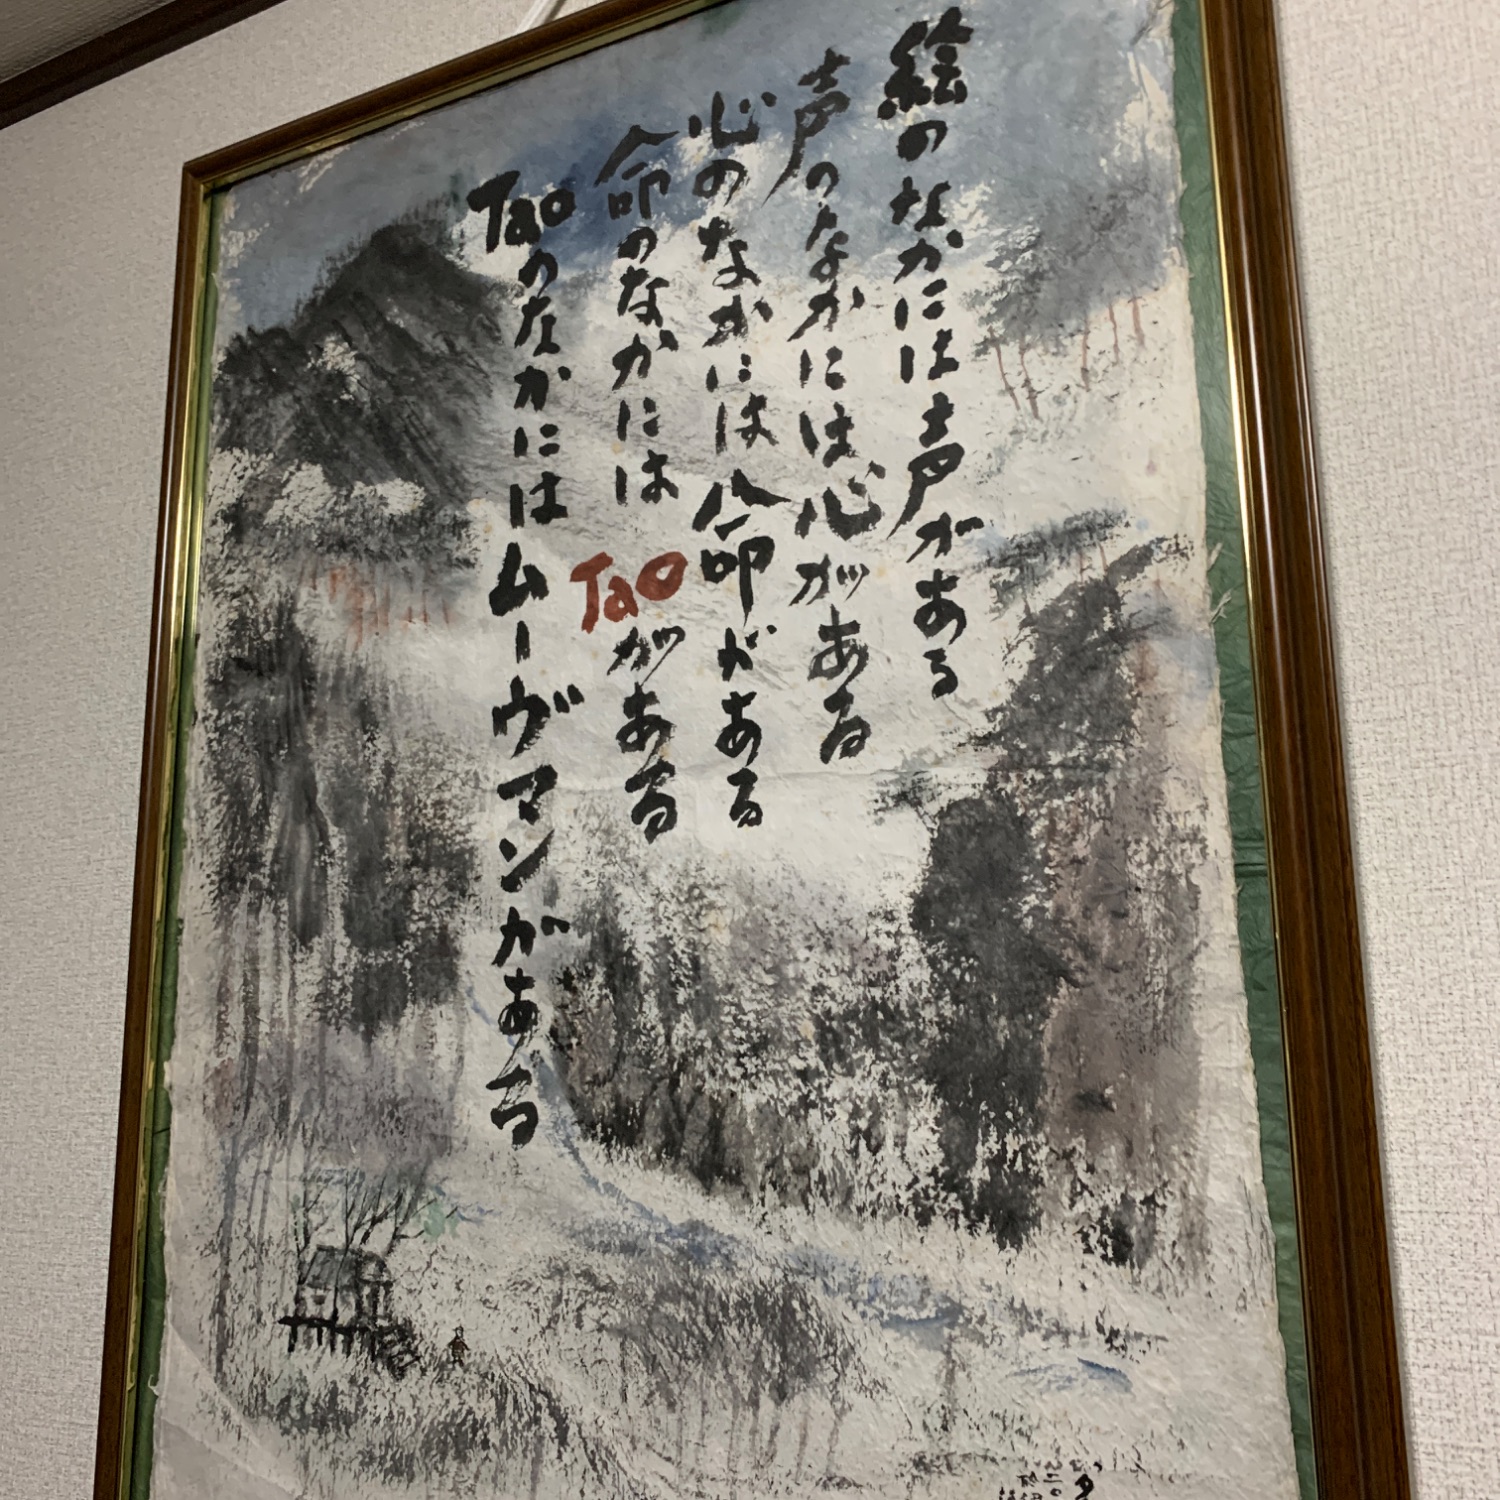 絵のなかには声がある
声のなかには心がある
心のなかには命がある
命のなかには Taoがある
Taoのなかにはムーヴマンがある